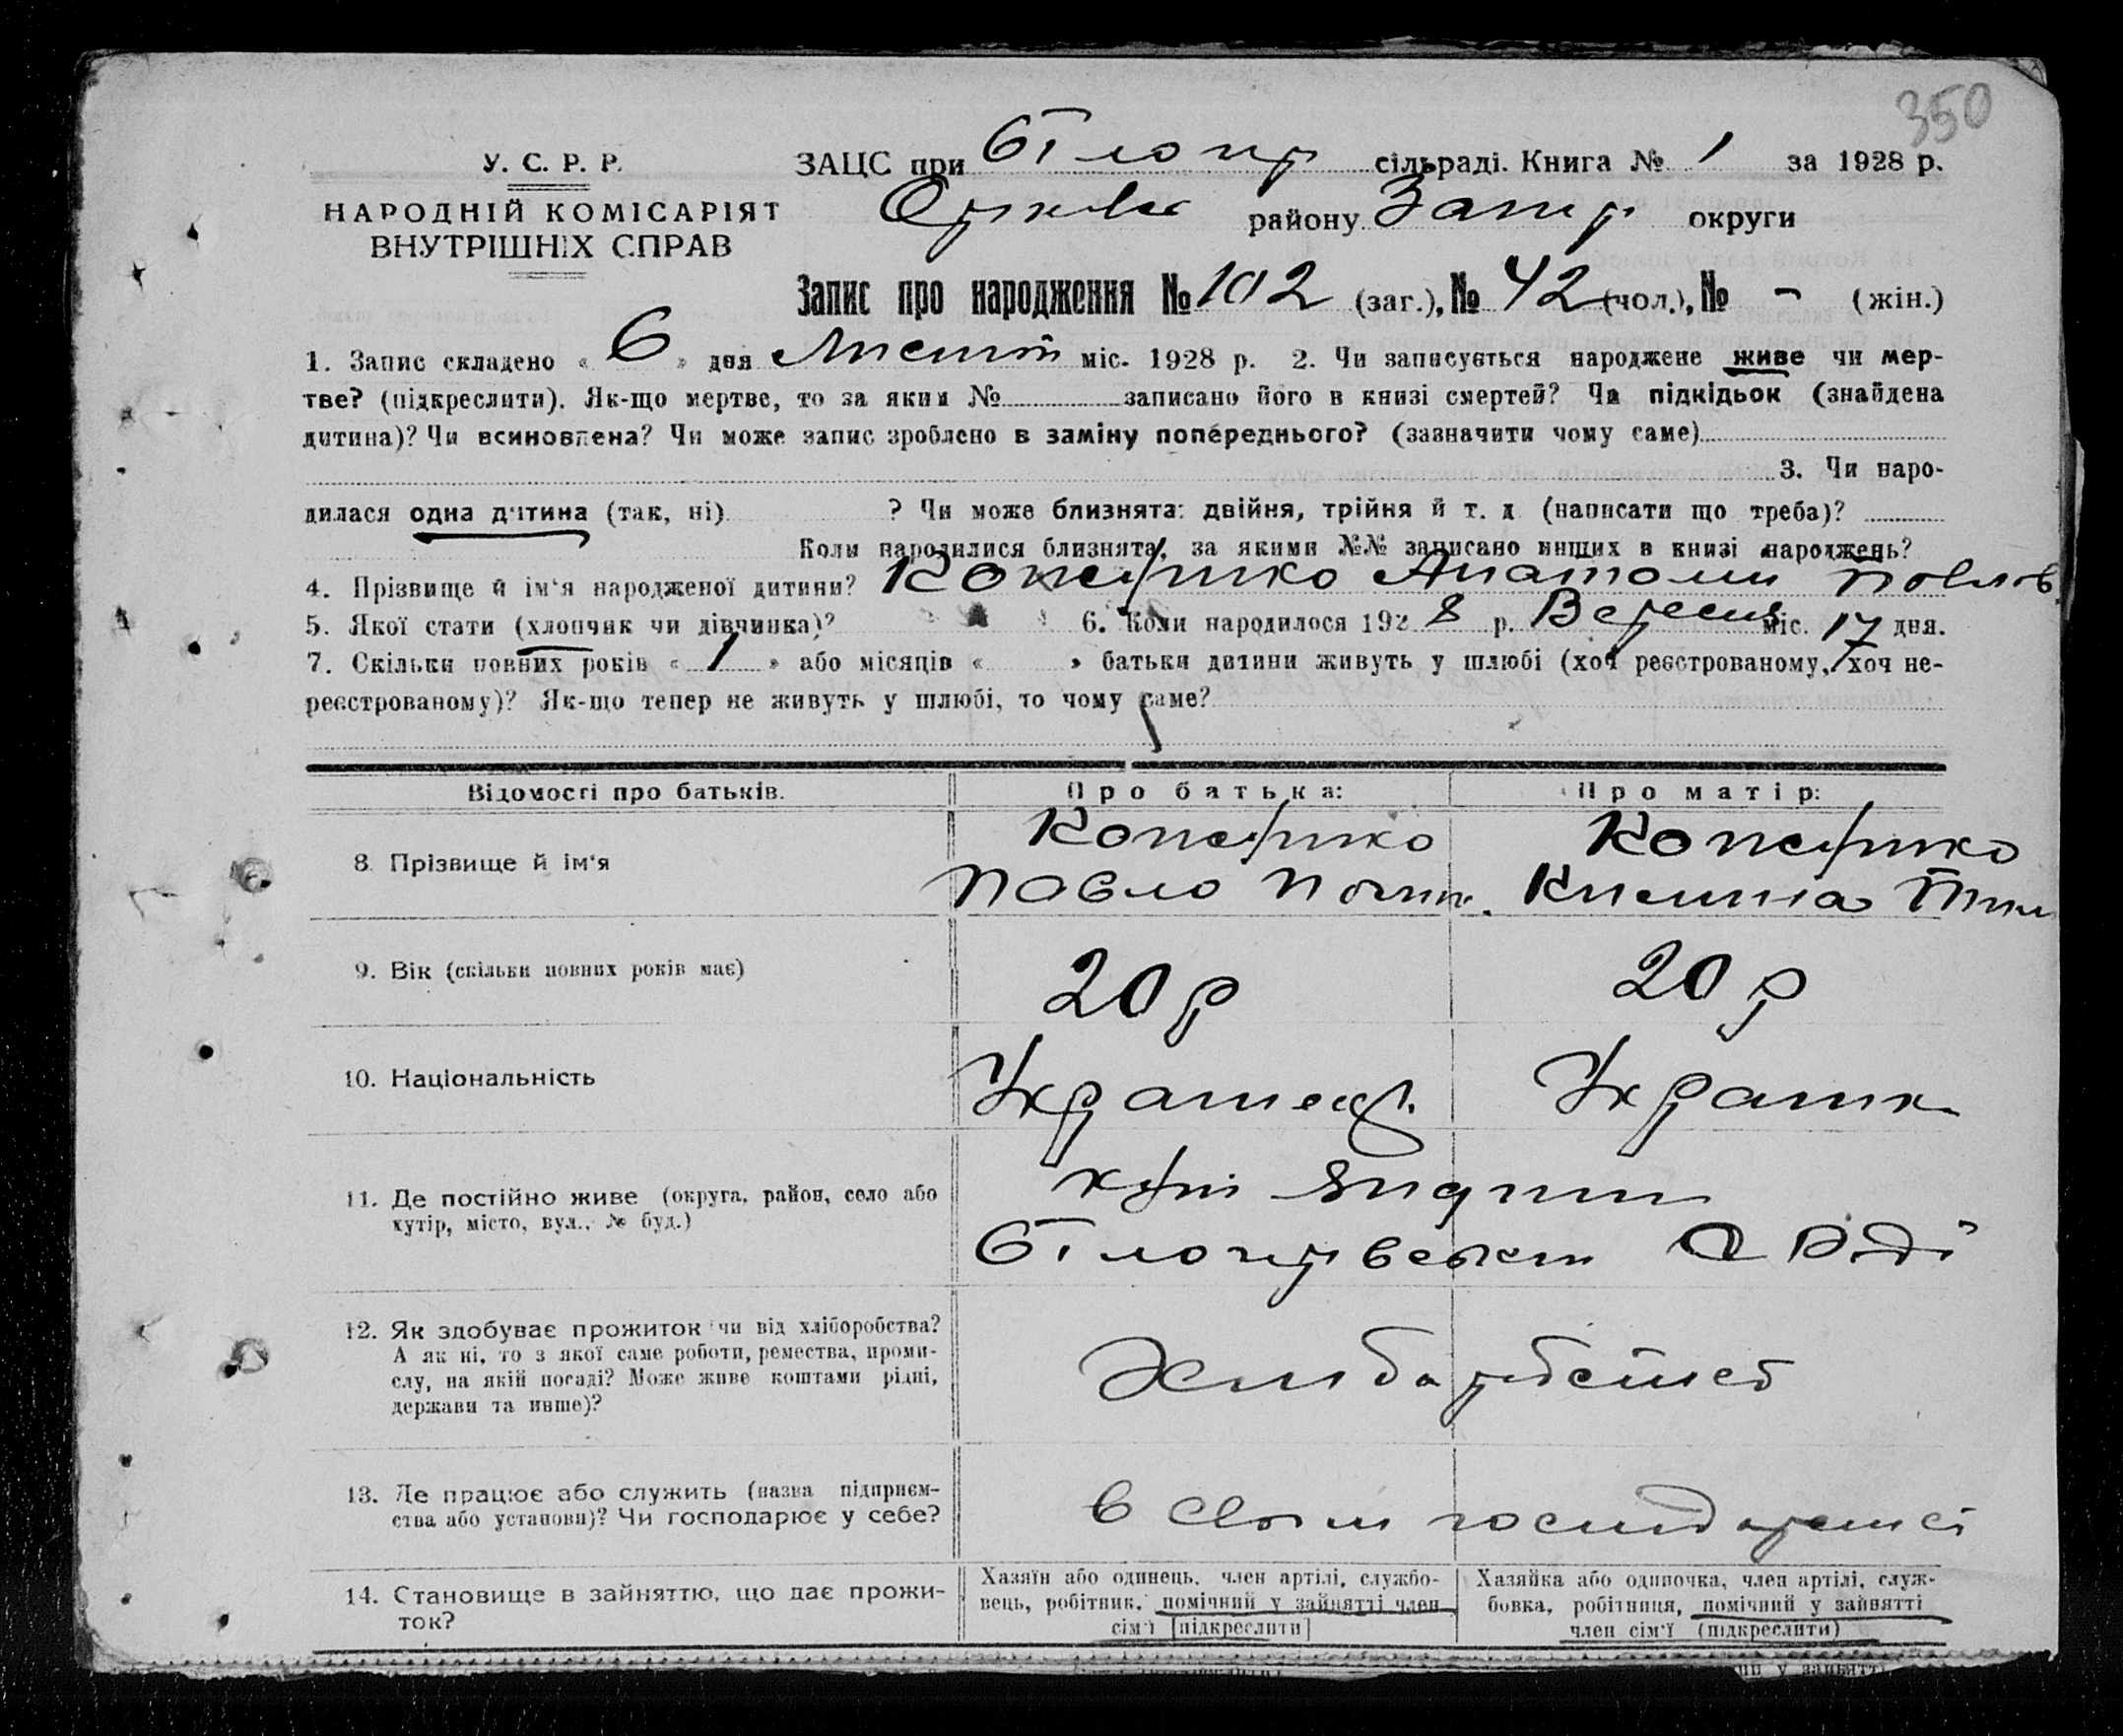 350
У. С. Р. Р.
НАРОДНІЙ КОМІСАРІЯТ
ВНУТРІШНІХ СПРАВ
ЗАЦС при Білоцр сільраді. Книга № 1 за 1928 р.
району Запор округи
Запис про народження № 102 (заг.), № 42 (чол.), № - (жін.)
1. Запис складено « 6 » дня Листоп міс. 1928 р. 2. Чи записується народжене живе чи мер-
тве? (підкреслити). Як-що мертве, то за яким № записано його в книзі смертей? Чи підкідьок (знайдена
дитина)? Чи всиновлена? Чи може запис зроблено в заміну попереднього? (зазначити чому саме)
3. Чи наро-
дилася одна дитина (так, ні) ? Чи може близнята: двійня, трійня й т. д (написати що треба)?
Коли народилися близнята, за якими №№ записано инших в книзі народжень?
4. Прізвище й ім'я народженої дитини? Анатолий Павлов
5. Якої стати (хлопчик чи дівчинка)? 6. Коли народилося 1928 р. Вересня міс. 17 дня.
7. Скільки повних років « 1 » або місяців « » батьки дитини живуть у шлюбі (хоч реєстрованому, хоч не-
реєстрованому)? Як-що тепер не живуть у шлюбі, то чому саме?
Відомості про батьків. Про батька: Про матір:
8 Прізвище й ім'я
Павло
9. Вік (скільки повних років має) 20 р 20 р
10. Національність Украинец. Украинк
11. Де постійно живе (округа, район, село або
хутір, місто, вул., № буд.)
12. Як здобуває прожиток чи від хліборобства?
А як ні, то з якої саме роботи, ремества, проми-
слу, на якій посаді? Може живе коштами рідні,
держави та инше)?
Хлиборобство
13. Де працює або служить (назва підприєм-
ства або установи)? Чи господарює у себе?
в своим господарстві
14. Становище в зайняттю, що дає прожи-
ток?
Хазяїн або одинець, член артілі, службо-
вець, робітник, помічний у зайнятті член
сім'ї [підкреслити]
Хазяйка або одиночка, член артілі, служ-
бовка, робітниця, помічний у зайнятті
член сім'ї (підкреслити)